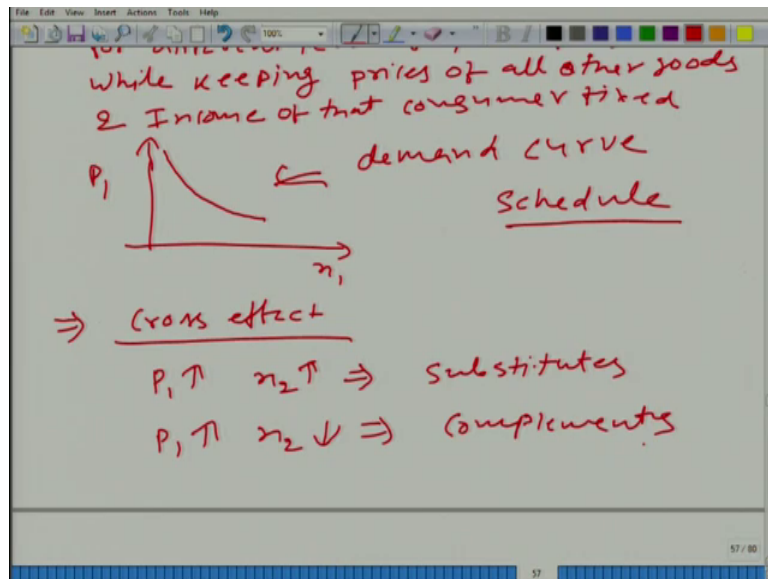 File Edit View Insert Actions Tools Help
100%
while keeping prices of all other goods
& Income of that consumer fixed
P₁ ⇐ demand curve
schedule
x₁
⇒ Cross effect
P₁ ↑ x₂ ↑ ⇒ Substitutes
P₁ ↑ x₂ ↓ ⇒ Complements
57 / 80
57